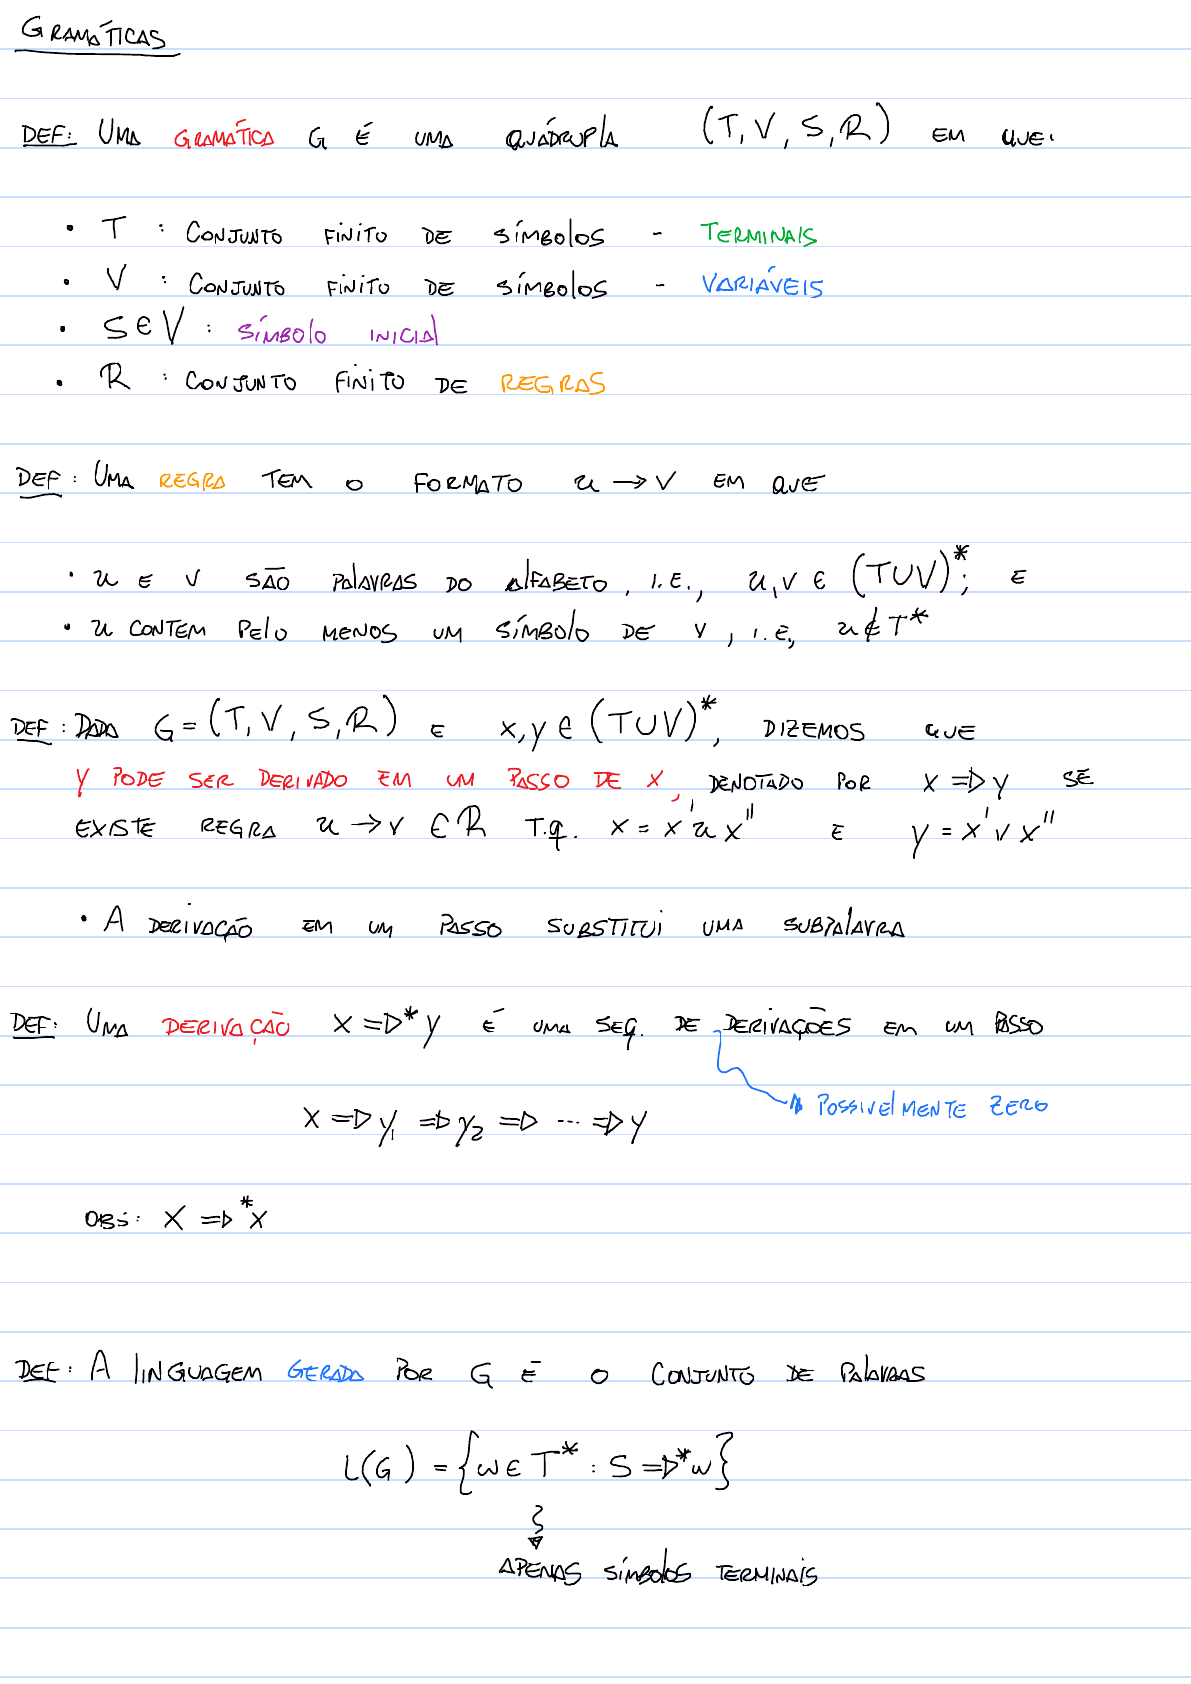 GRAMÁTICAS
DEF: UMA GRAMÁTICA G É UMA QUÁDRUPLA (T, V, S, R) EM QUE:
• T : CONJUNTO FINITO DE SÍMBOLOS - TERMINAIS
• V : CONJUNTO FINITO DE SÍMBOLOS - VARIÁVEIS
• S ∈ V : SÍMBOLO INICIAL
• R : CONJUNTO FINITO DE REGRAS
DEF: UMA REGRA TEM O FORMATO u → v EM QUE
• u E v SÃO PALAVRAS DO ALFABETO, I.E., u,v ∈ (T∪V)*; E
• u CONTEM PELO MENOS UM SÍMBOLO DE V, I.E, u ∉ T*
DEF: DADA G = (T, V, S, R) E x,y ∈ (T∪V)*, DIZEMOS QUE
y PODE SER DERIVADO EM UM PASSO DE x, DENOTADO POR x ⇒ y SE
EXISTE REGRA u → v ∈ R T.q. x = x' u x'' E y = x' v x''
• A DERIVAÇÃO EM UM PASSO SUBSTITUI UMA SUBPALAVRA
DEF: UMA DERIVAÇÃO x ⇒* y É UMA SEQ. DE DERIVAÇÕES EM UM PASSO
POSSIVELMENTE ZERO
x ⇒ y₁ ⇒ y₂ ⇒ ... ⇒ y
OBS: x ⇒* x
DEF: A LINGUAGEM GERADA POR G É O CONJUNTO DE PALAVRAS
L(G) = {w ∈ T* : S ⇒* w}
APENAS SÍMBOLOS TERMINAIS